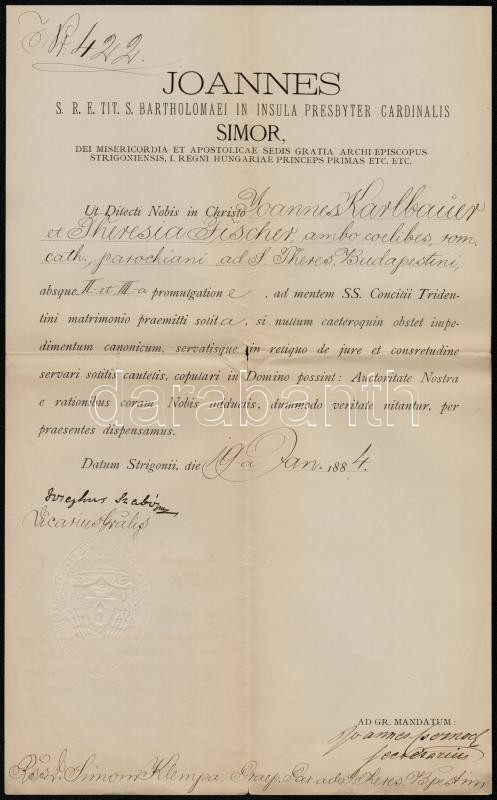 Nr. 422.
JOANNES
S. R. E. TIT. S. BARTHOLOMAEI IN INSULA PRESBYTER CARDINALIS
SIMOR,
DEI MISERICORDIA ET APOSTOLICAE SEDIS GRATIA ARCHI-EPISCOPUS
STRIGONIENSIS, I. REGNI HUNGARIAE PRINCEPS PRIMAS ETC. ETC.
Ut Dilecti Nobis in Christo Joannes Karlbauer
et Theresia Fischer, ambo coelibes, rom.
cath. parochiani ad S. Theres. Budapestini,
absque II et III-a promulgatione, ad mentem SS. Concilii Triden-
tini matrimonio praemitti solita, si nullum caeteroquin obstet impe-
dimentum canonicum, servatisque in reliquo de jure et consvetudine
servari solitis cautelis, copulari in Domino possint: Auctoritate Nostra
e rationibus coram Nobis adductis, dummodo veritate nitantur, per
praesentes dispensamus.
darabanth
Datum Strigonii, die 19a Jan. 1884.
Josephus Szabó
Vicarius Gralis
AD GR. MANDATUM:
Joannes
secretarius
Simoni Klempa Praep. Par. ad S. Theres. Bpestini